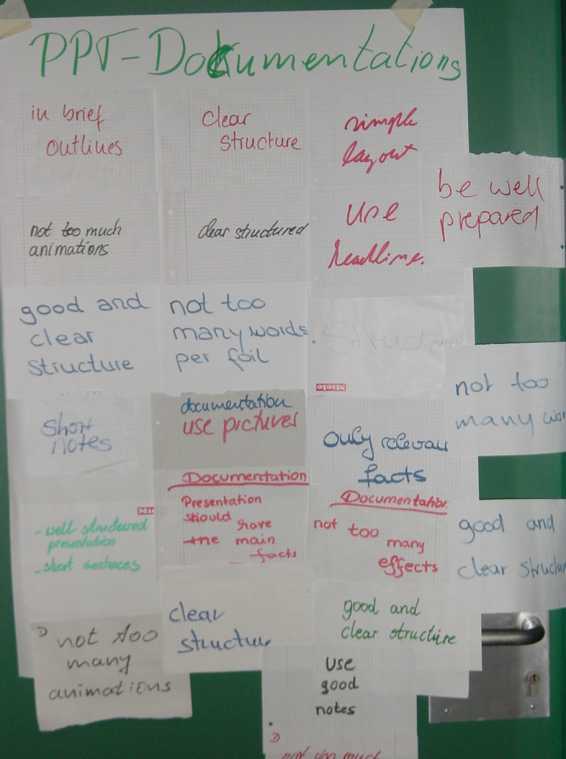 PPT-Documentations
in brief
outlines
clear
structure
simple
layout
be well
prepared
not too much
animations
clear structured
use
headline.
good and
clear
structure
not too
many words.
per foil
structure
not too
many
short
notes
documentation
use pictures
only relevan
facts
good and
clear structu
- well structured
presentation
- short sentences
Documentation
Presentation
should have
the main
facts
Documentation
not too
many
effects
not too
many
animations
clear
structur
good and
clear structure
use
good
notes